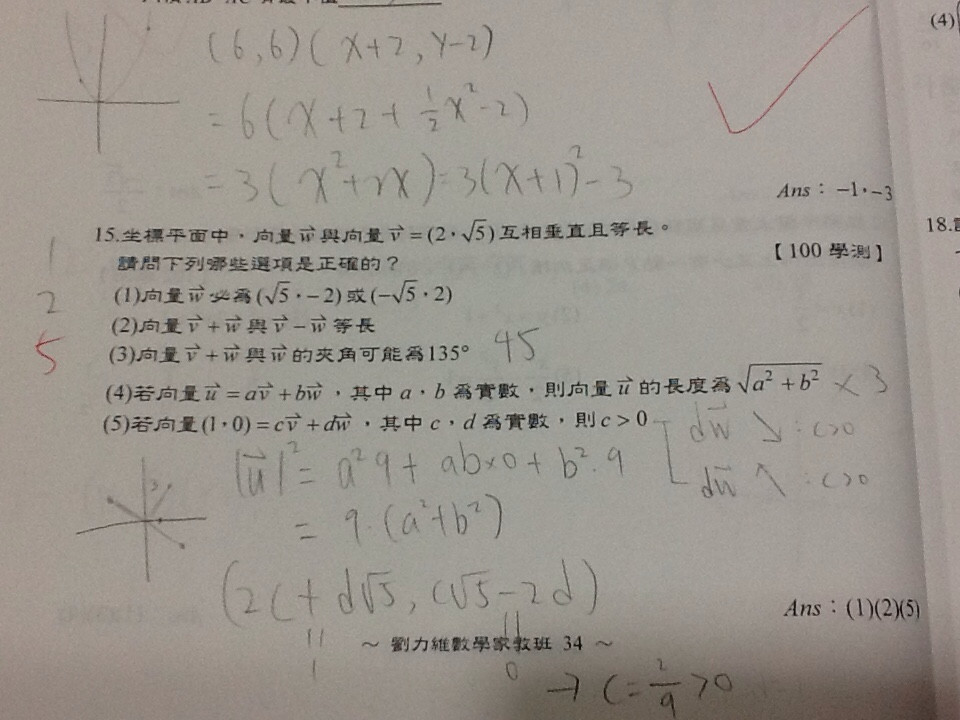 (6,6)(x+2, y-2)
= 6(x+2+½x²-2)
= 3(x²+2x)=3(x+1)²-3
(4)
Ans：-1，-3
15.坐標平面中，向量w⃗與向量v⃗=(2，√5)互相垂直且等長。
請問下列哪些選項是正確的？ 【100 學測】
18.
1
2
5
(1)向量w⃗必為(√5，-2)或(-√5，2)
(2)向量v⃗+w⃗與v⃗-w⃗等長
(3)向量v⃗+w⃗與w⃗的夾角可能為135° 45
(4)若向量u⃗=av⃗+bw⃗，其中a，b為實數，則向量u⃗的長度為√a²+b² ×3
(5)若向量(1，0)=cv⃗+dw⃗，其中c，d為實數，則c>0
dw⃗ ↘ : c>0
dw⃗ ↖ : c>0
|u⃗|²= a²9+ab×0+b²·9
= 9·(a²+b²)
(2c+d√5, c√5-2d)
Ans：(1)(2)(5)
～ 劉力維數學家教班 34 ～
1 0
→ c=2/9>0